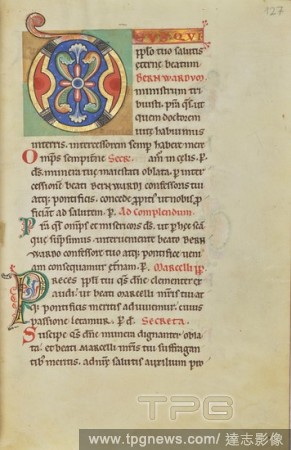 127
DS QVI
pplo tuo salutis
eterne beatum
BERNWARDVM
ministrum tri
buisti. psta qs. ut
quem doctorem
uite habuimus
in terris. intercessorem semp habere mer
in celis. p.
ds. munera tue maiestati oblata. p inter
cessione beati BERNWARDI confessoris tui
atq; pontificis.
ficiant ad salutem. p. Ad Complendum
omps et misericors ds. ut
sumpsimus. interueniente beato BERN
WARDO confessore tuo atq; pontifice
consequamur. Marcelli pp.
Preces ppli tui qs dne clementer ex
audi. ut beati Marcelli mris tui at
q; pontificis meritis adiuuemur. cuius
passione letamur. p d. Secreta.
Suscipe qs dne munera dignanter obla
ta. et beati Marcelli mris tui suffragan
tib; meritis. ad nre salutis auxilium pro
TPG
www.tpgnews.com / 達志影像